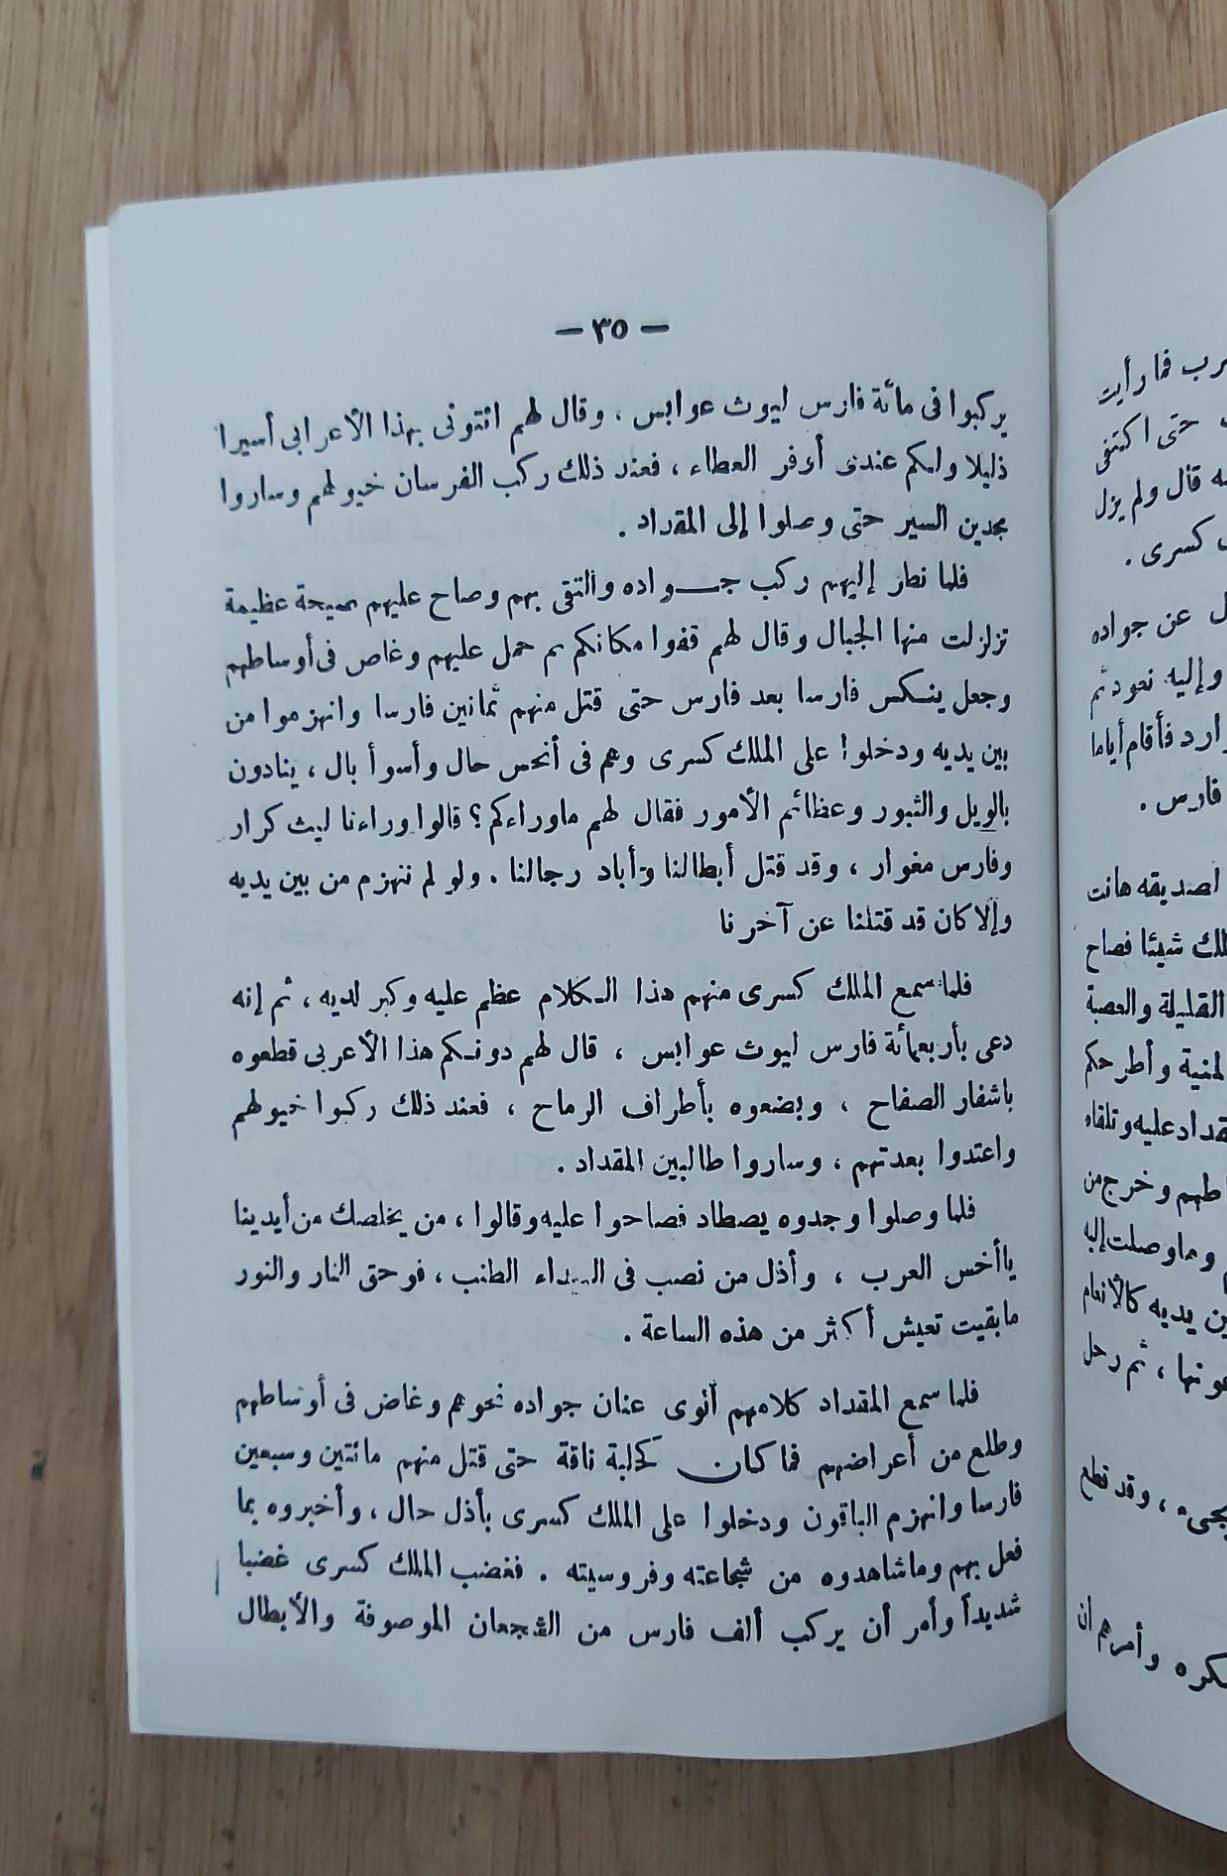 — ٣٥ —
يركبوا فى مائة فارس ليوث عوابس ، وقال لهم ائتونى بهذا الأعرابى أسيرا
ذليلا ولكم عندى أوفر العطاء ، فعند ذلك ركب الفرسان خيولهم وساروا
مجدين السير حتى وصلوا إلى المقداد .
فلما نظر إليهم ركب جــواده والتقى بهم وصاح عليهم صيحة عظيمة
تزلزلت منها الجبال وقال لهم قفوا مكانكم ثم حمل عليهم وغاص فى أوساطهم
وجعل ينكس فارسا بعد فارس حتى قتل منهم ثمانين فارسا وانهزموا من
بين يديه ودخلوا على الملك كسرى وهم فى أنحس حال وأسوأ بال ، ينادون
بالويل والثبور وعظائم الأمور فقال لهم ماوراءكم ؟ قالوا وراءنا ليث كرار
وفارس مغوار ، وقد قتل أبطالنا وأباد رجالنا . ولو لم ننهزم من بين يديه
وإلا كان قد قتلنا عن آخرنا
فلما سمع الملك كسرى منهم هذا الـكلام عظم عليه وكبر لديه ، ثم إنه
دعى بأربعمائة فارس ليوث عوابس ، قال لهم دونـكم هذا الأعربى قطعوه
باشفار الصفاح ، وبضعوه بأطراف الرماح ، فعند ذلك ركبوا خيولهم
واعتدوا بعدتهم ، وساروا طالبين المقداد .
فلما وصلوا وجدوه يصطاد فصاحوا عليه وقالوا ، من يخلصك من أيدينا
ياأخس العرب ، وأذل من نصب فى البيداء الطنب ، فوحق النار والنور
مابقيت تعيش أكثر من هذه الساعة .
فلما سمع المقداد كلامهم ألوى عنان جواده نحوهم وغاض فى أوساطهم
وطلع من أعراضهم فما كان كحلبة ناقة حتى قتل منهم مائتين وسبعين
فارسا وانهزم الباقون ودخلوا على الملك كسرى بأذل حال ، وأخبروه بما
فعل بهم وماشاهدوه من شجاعته وفروسيته . فغضب الملك كسرى غضبا
شديدأ وأمر أن يركب ألف فارس من الشجعان الموصوفة والأبطال
فما رأيت
حتى اكتفى
قال ولم يزل
كسرى .
عن جواده
وإليه نعود ثم
فأقام أياما
فارس .
اصديقه هانت
شيئا فصاح
القليلة والعصبة
وأطرحكم
عليه وتلقاه
وخرج من
وماوصلت إليه
يديه كالأنعام
، ثم رحل
، وقد قطع
وأمرهم أن